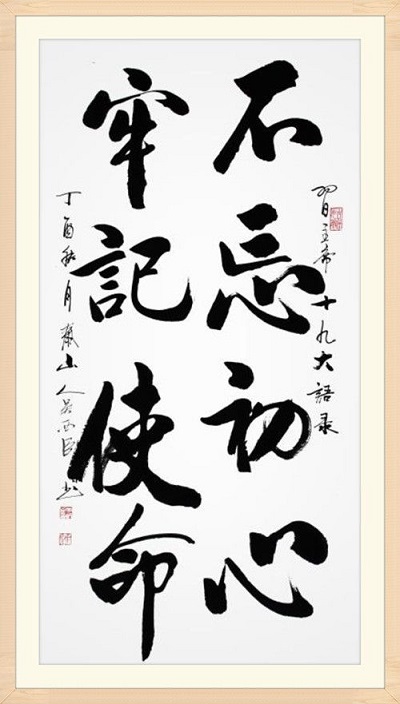 習主席十九大語录
不忘初心
牢記使命
丁酉秋月山人